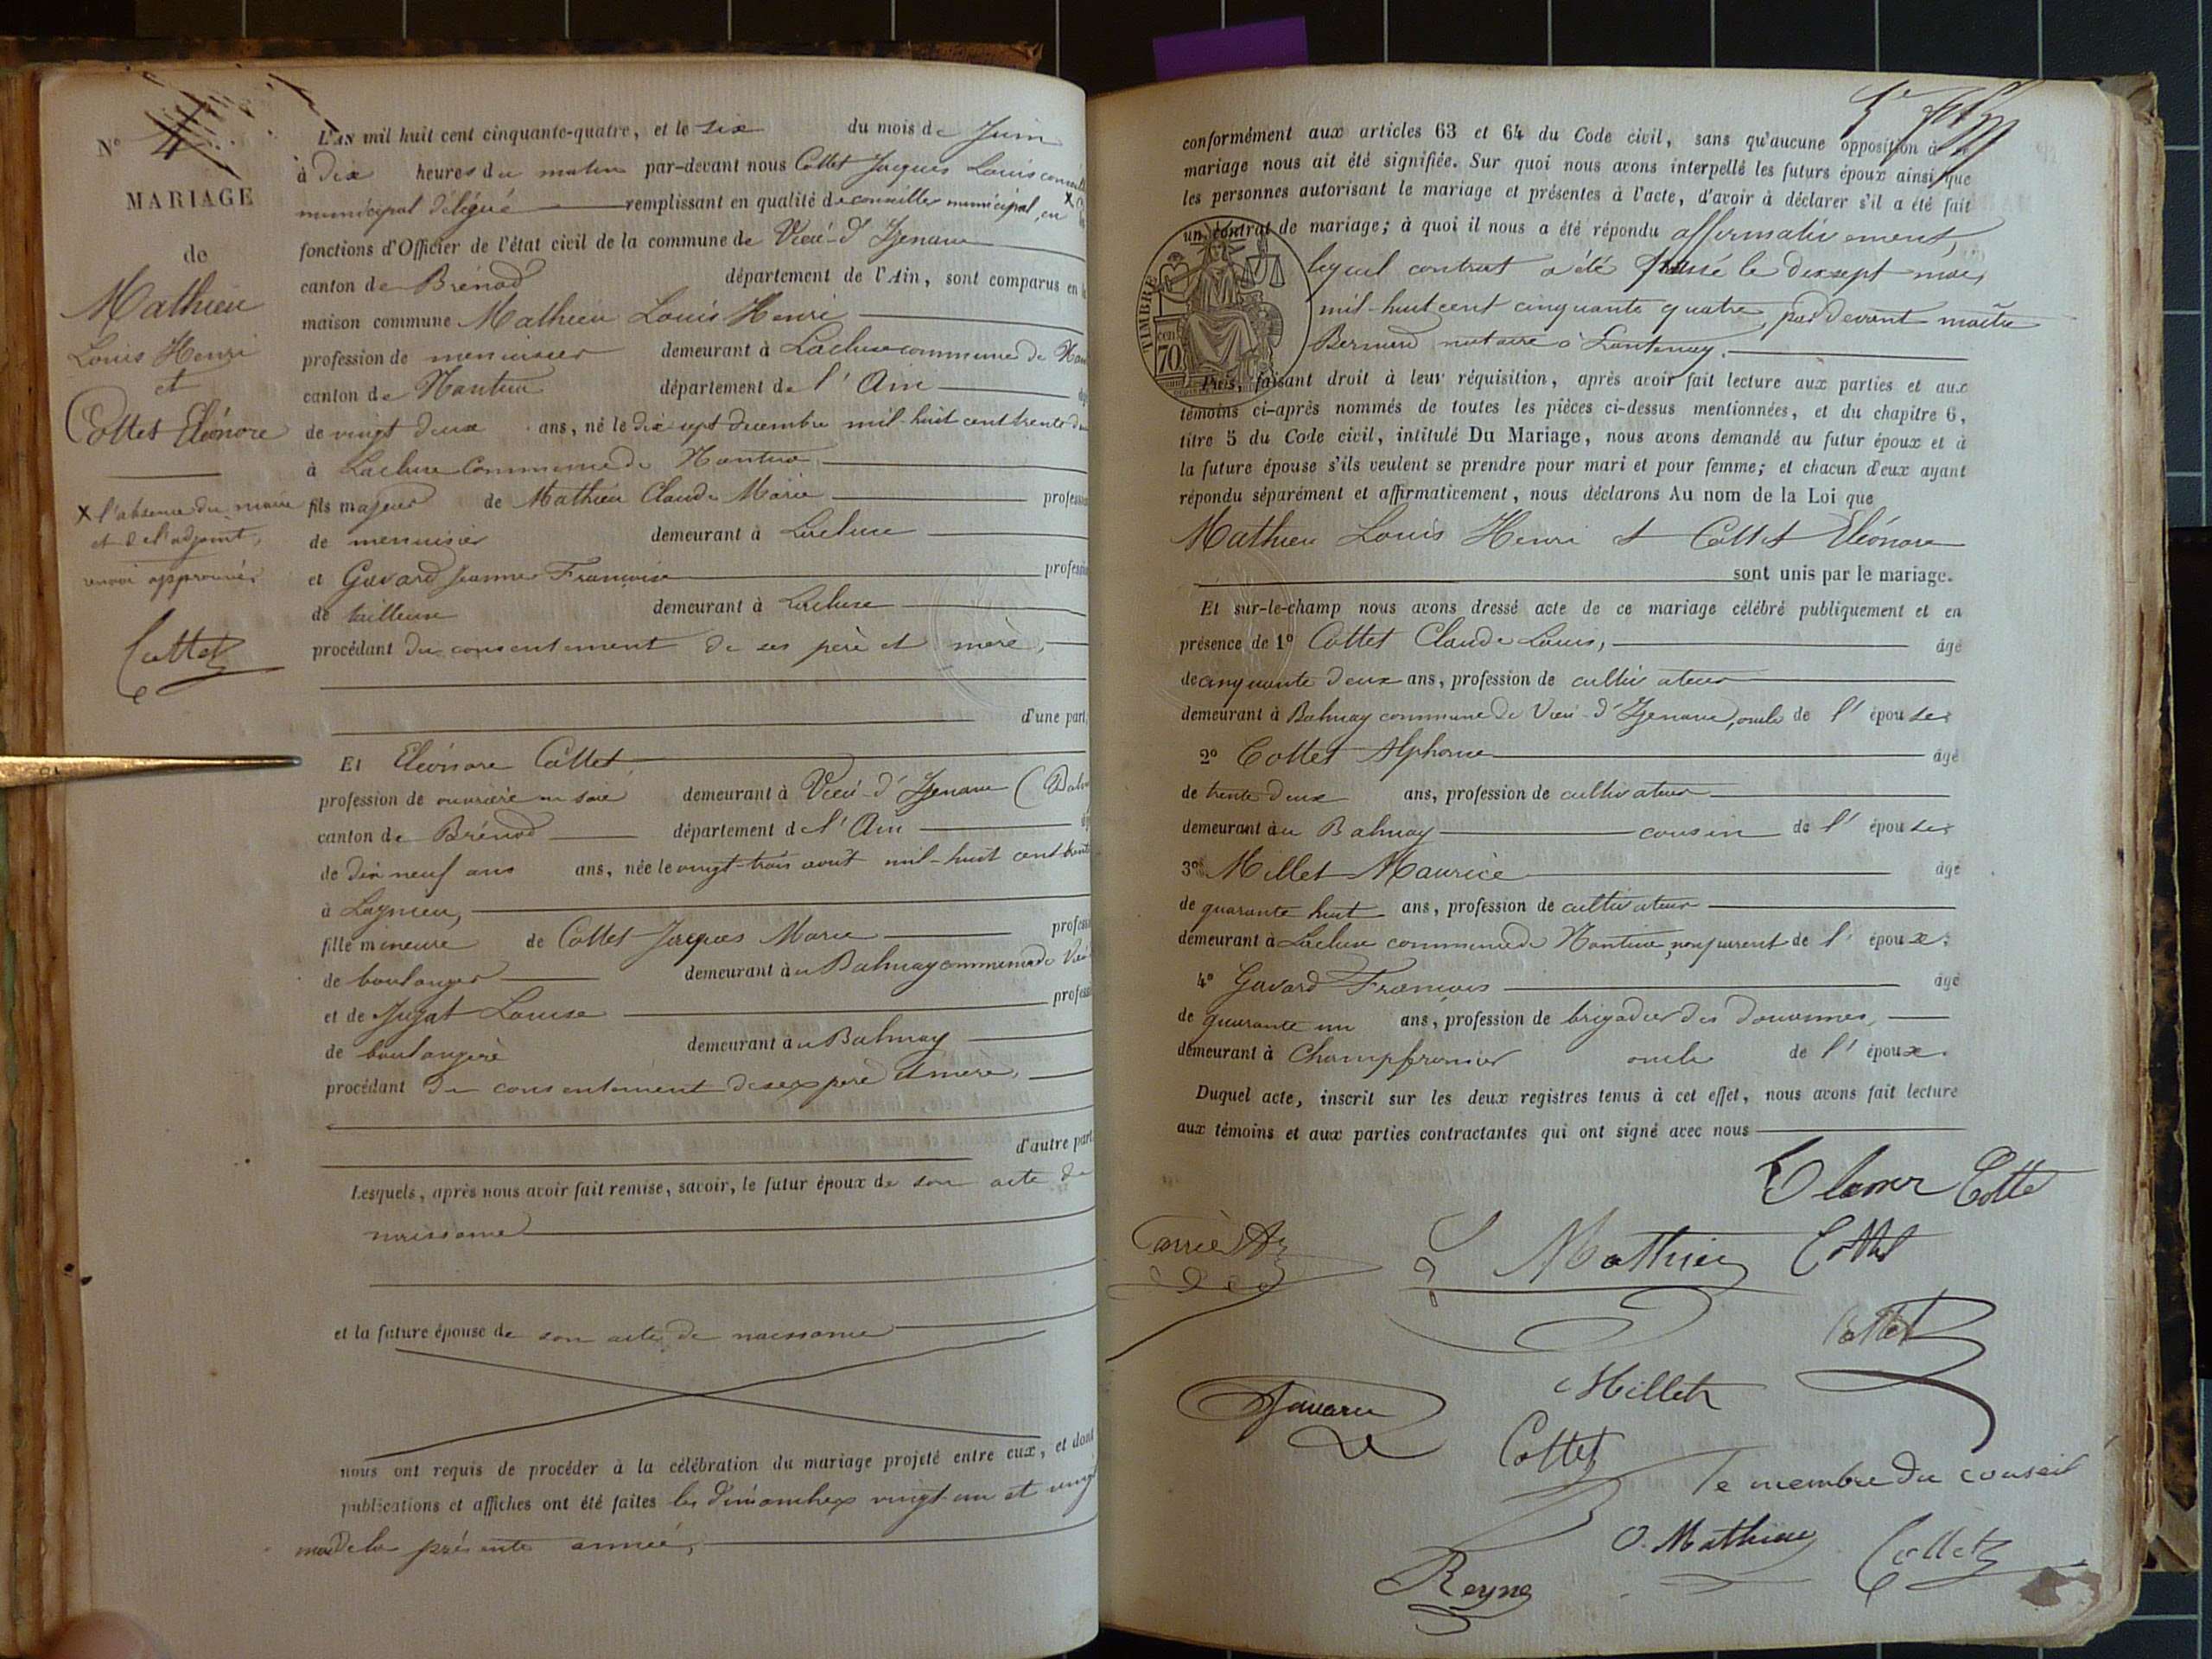 N° 4
MARIAGE
de
Mathieu
Louis Henri
et
Cottet Eléonore
X l'absence du maire
et de l'adjoint,
renvoi approuvé
Cottet
L'AN mil huit cent cinquante-quatre, et le six du mois de Juin
à dix heures du matin par-devant nous Cottet Jacques Louis
municipal délégué remplissant en qualité de conseiller municipal, en X
fonctions d'Officier de l'état civil de la commune de Vieu-d'Izenave
canton de Brénod département de l'Ain, sont comparus en la
maison commune Mathieu Louis Henri
profession de menuisier demeurant à Lacluse commune de
canton de Nantua département de l'Ain
de vingt deux ans, né le dix sept decembre mil-huit cent trente
à Lacluse Commune de Nantua
fils majeur de Mathieu Claude Marie profession
de menuisier demeurant à Lacluse
et Gavard Jeanne Françoise profession
de tailleuse demeurant à Lacluse
procédant du consentement de ses père et mère,
d'une part,
Et Eléonore Cottet
profession de ouvrière en soie demeurant à Vieu-d'Izenave
canton de Brénod département de l'Ain
de dix neuf ans ans, née le vingt-trois août mil-huit cent trente
à Lagnieu,
fille mineure de Cottet Jacques Marie profession
de boulanger demeurant à Balmay commune de Vieu
et de Jujat Louise profession
de boulangère demeurant à Balmay
procédant du consentement de ses père et mère,
d'autre part
Lesquels, après nous avoir fait remise, savoir, le futur époux de son acte de
naissance
et la future épouse de son acte de naissance
nous ont requis de procéder à la célébration du mariage projeté entre eux, et dont
publications et affiches ont été faites les dimanches vingt-un et vingt
mai de la présente année,
conformément aux articles 63 et 64 du Code civil, sans qu'aucune opposition à ce
mariage nous ait été signifiée. Sur quoi nous avons interpellé les futurs époux ainsi que
les personnes autorisant le mariage et présentes à l'acte, d'avoir à déclarer s'il a été fait
un contrat de mariage; à quoi il nous a été répondu affirmativement,
lequel contrat a été passé le dix sept mai,
mil-huit cent cinquante quatre, par devant maître
Bernard notaire à Lantenay.
TIMBRE
70
Puis, faisant droit à leur réquisition, après avoir fait lecture aux parties et aux
témoins ci-après nommés de toutes les pièces ci-dessus mentionnées, et du chapitre 6,
titre 5 du Code civil, intitulé Du Mariage, nous avons demandé au futur époux et à
la future épouse s'ils veulent se prendre pour mari et pour femme; et chacun d'eux ayant
répondu séparément et affirmativement, nous déclarons Au nom de la Loi que
Mathieu Louis Henri et Cottet Eléonore
sont unis par le mariage.
Et sur-le-champ nous avons dressé acte de ce mariage célébré publiquement et en
présence de 1° Cottet Claude Louis, âgé
de cinquante deux ans, profession de cultivateur
demeurant à Balmay commune de Vieu-d'Izenave, oncle de l'épouse
2° Cottet Alphonse âgé
de trente deux ans, profession de cultivateur
demeurant à Balmay cousin de l'épouse
3° Millet Maurice âgé
de quarante huit ans, profession de cultivateur
demeurant à Lacluse commune de Nantua, non parent de l'époux;
4° Gavard François âgé
de quarante un ans, profession de brigadier des douannes,
demeurant à Champfromier oncle de l'époux.
Duquel acte, inscrit sur les deux registres tenus à cet effet, nous avons fait lecture
aux témoins et aux parties contractantes qui ont signé avec nous
Mathieu Cottet
Cottet
Millet
Gavard
Cottet
Le membre du conseil
O. Mathieu Cottet
Reyne